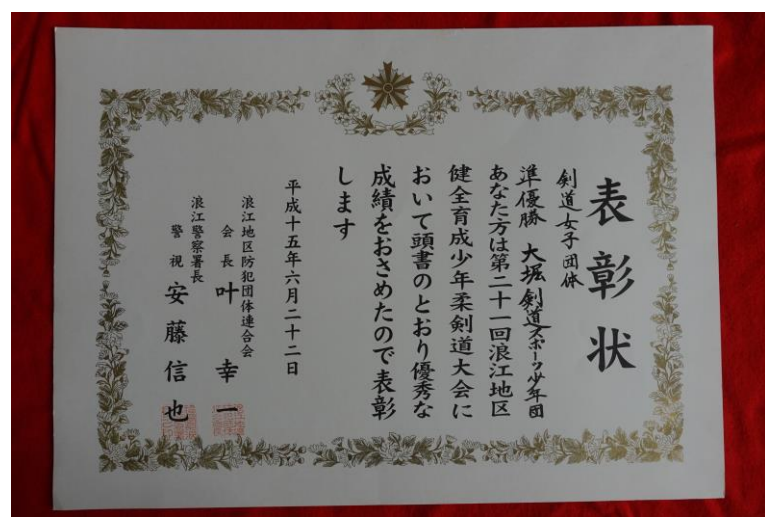 表彰状
剣道女子団体
準優勝 大堀剣道スポーツ少年団
あなた方は第二十一回浪江地区
健全育成少年柔剣道大会に
おいて頭書のとおり優秀な
成績をおさめたので表彰
します
平成十五年六月二十二日
浪江地区防犯団体連合会
会長 叶幸一
浪江警察署長
警視 安藤信也